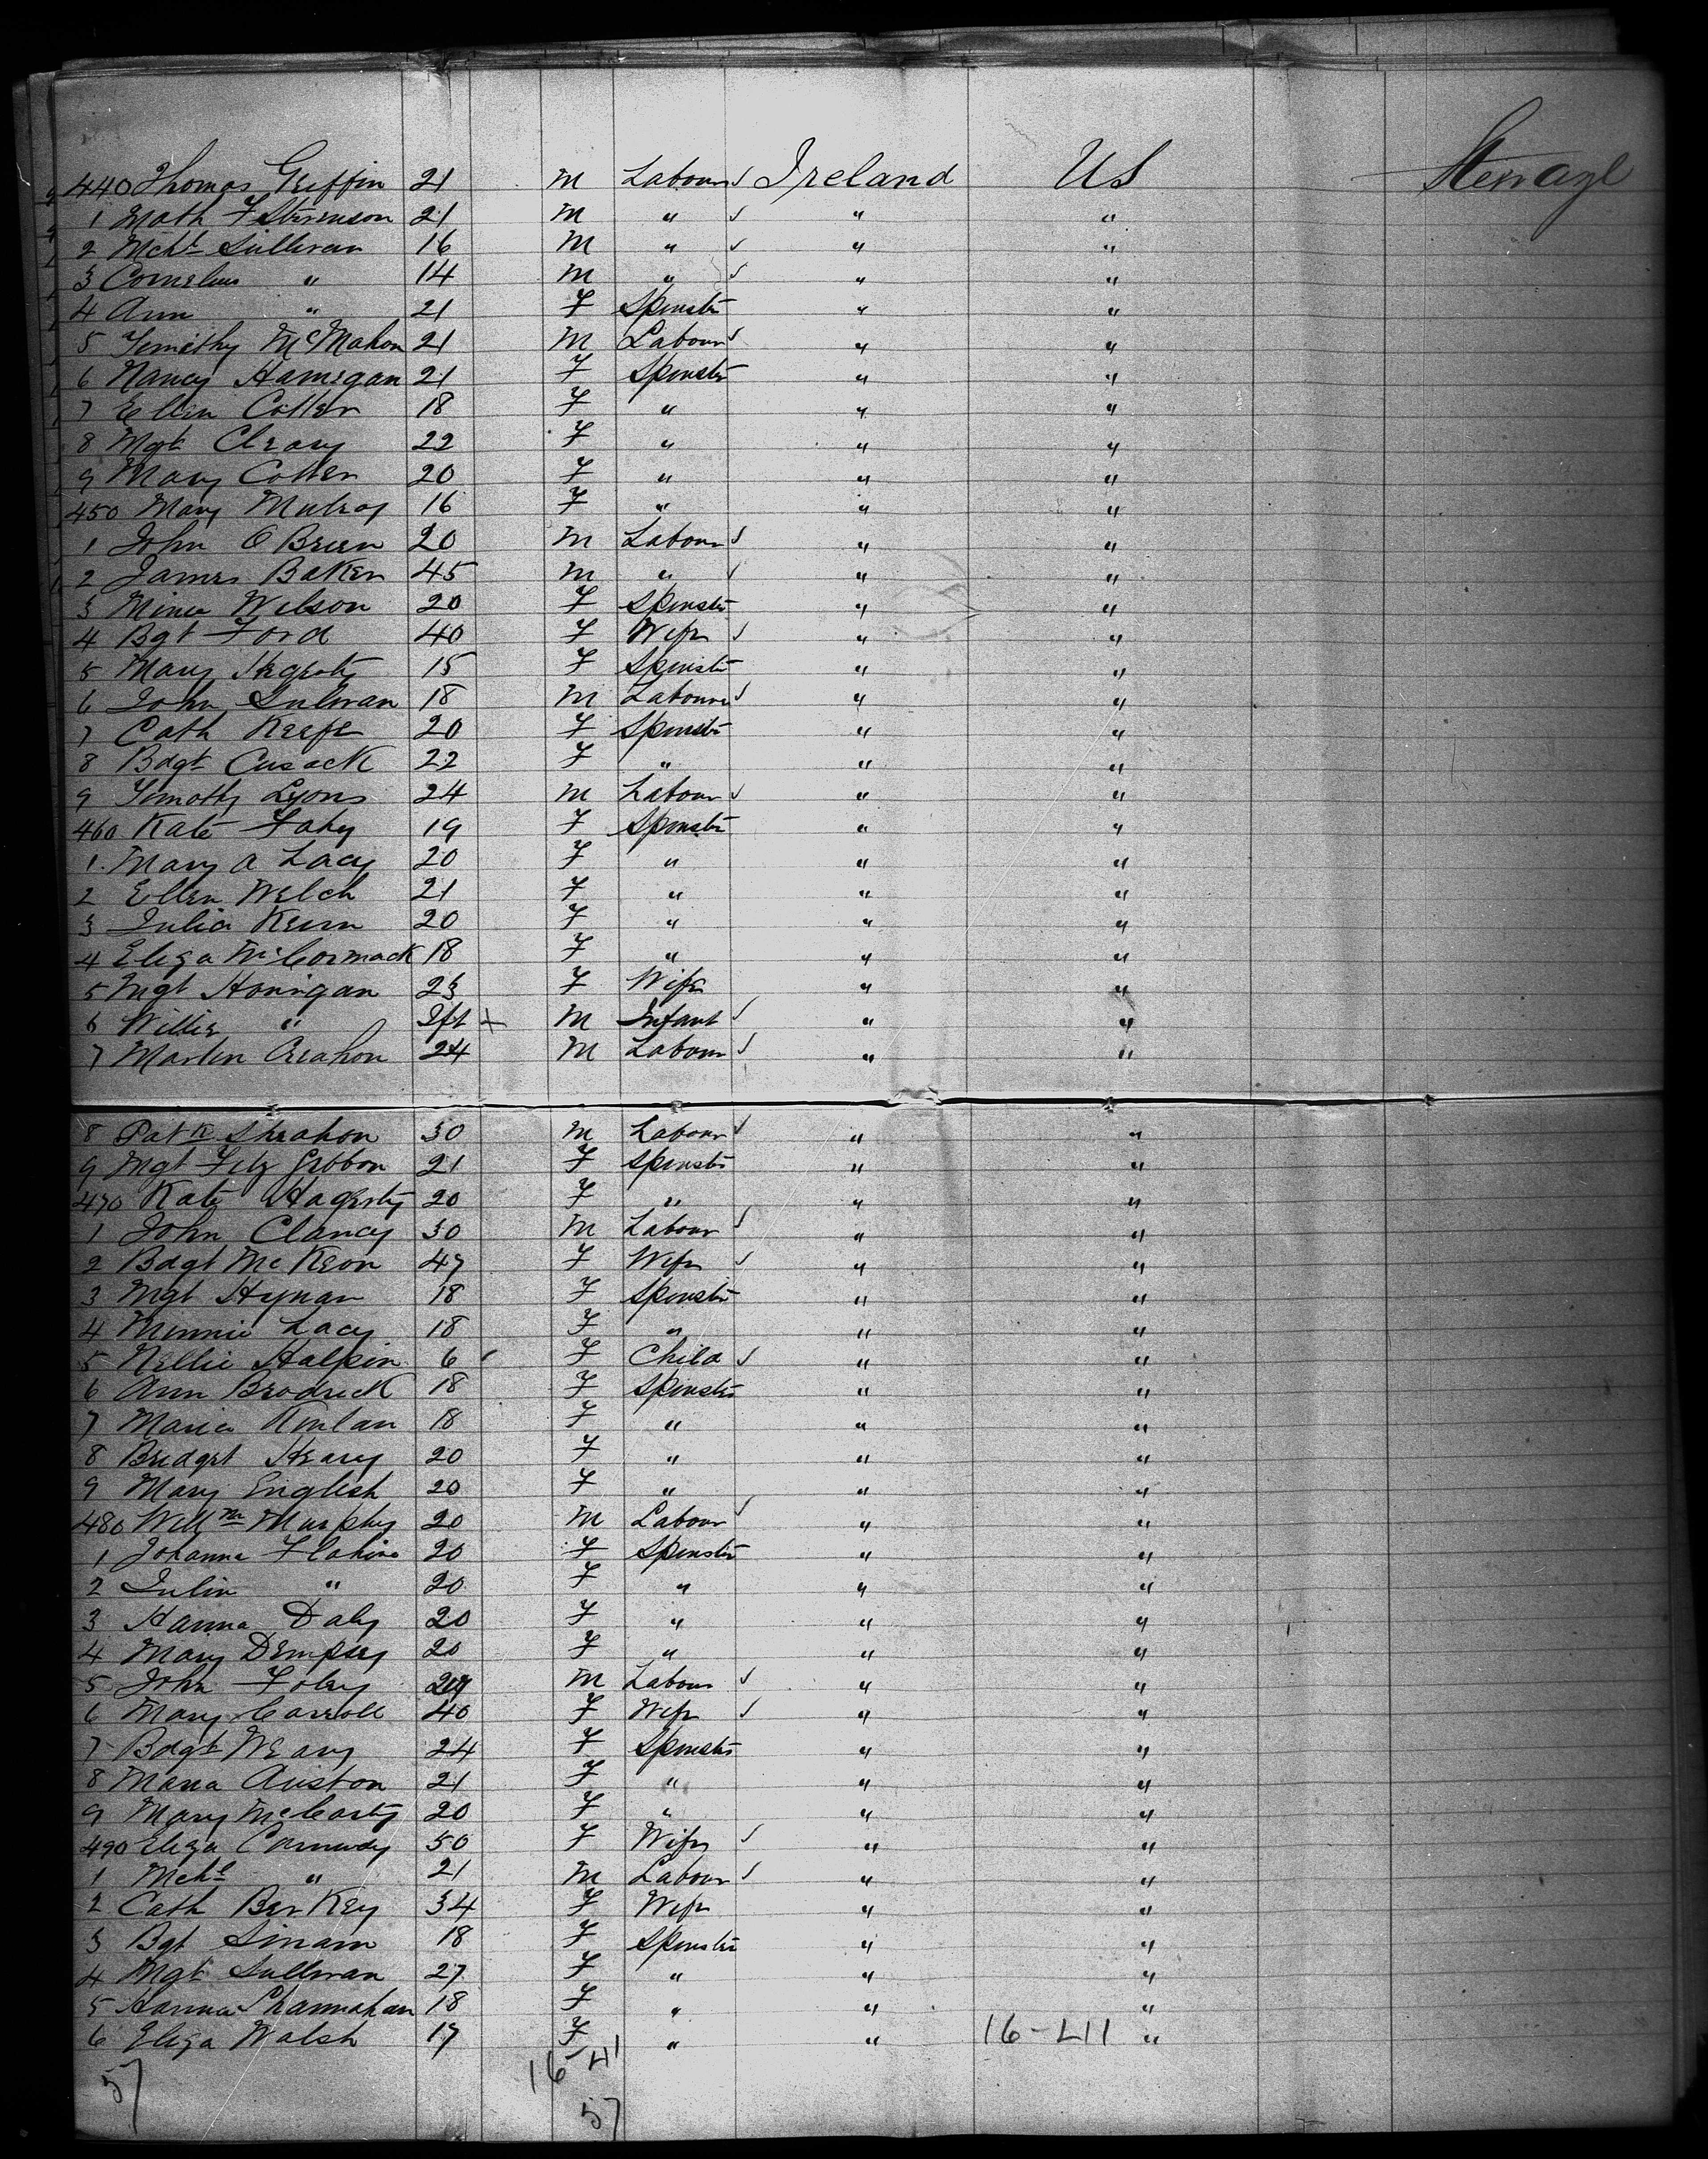 440 Thomas Griffin 21 M Labour ✓ Ireland US Steerage
1 Math F Stevenson 21 M " ✓ " "
2 Mchl Sullivan 16 M " ✓ " "
3 Cornelius " 14 M " ✓ " "
4 Ann " 21 F Spinstr " "
5 Timothy McMahon 21 M Labour ✓ " "
6 Nancy Hanigan 21 F Spinstr " "
7 Ellin Cotter 18 F " " "
8 Mgt Cleary 22 F " " "
9 Mary Cotter 20 F " " "
450 Mary Mulroy 16 F " " "
1 John O Brien 20 M Labour ✓ " "
2 James Baker 45 M " ✓ " "
3 Mina Wilson 20 F Spinstr " "
4 Bgt Ford 40 F Wife ✓ " "
5 Mary Hegerty 15 F Spinstr " "
6 John Sulivan 18 M Labour ✓ " "
7 Cath Keefe 20 F Spinstr " "
8 Bdgt Cusack 22 F " " "
9 Timothy Lyons 24 M Labour ✓ " "
460 Kate Fahy 19 F Spinstr " "
1 Mary A Lacy 20 F " " "
2 Ellen Welch 21 F " " "
3 Julia Keirn 20 F " " "
4 Eliza McCormack 18 F " " "
5 Mgt Honigan 23 F Wife " "
6 Willie " Ift + M Infant ✓ " "
7 Martin 24 M Labour ✓ " "
8 Patk Strahon 30 M Labour ✓ " "
9 Mgt Fitz Gibbon 21 F Spinstr " "
470 Kate Hagerty 20 F " " "
1 John Clancy 30 M Labour ✓ " "
2 Bdgt McKeon 47 F Wife ✓ " "
3 Mgt Hynan 18 F Spinstr " "
4 Minnie Lacy 18 F " " "
5 Nellie Halpin 6 F Child ✓ " "
6 Ann Brodrick 18 F Spinstr " "
7 Maria Kinlan 18 F " " "
8 Bridget Heary 20 F " " "
9 Mary English 20 F " " "
480 Willm Murphy 20 M Labour ✓ " "
1 Johanna Flahive 20 F Spinstr " "
2 Julia " 20 F " " "
3 Hanna Daly 20 F " " "
4 Mary Dempsey 20 F " " "
5 John Foley M Labour ✓ " "
6 Mary Carroll 40 F Wife ✓ " "
7 Bdgt Neary 24 F Spinstr " "
8 Maria Auston 21 F " " "
9 Mary McCarty 20 F " " "
490 Eliza 50 F Wife ✓ " "
1 Mchl " 21 M Labour ✓ " "
2 Cath Berkey 34 F Wife " "
3 Bgt Sinam 18 F Spinstr " "
4 Mgt Sullivan 27 F " " "
5 Hanna Shannahan 18 F " " "
6 Eliza Walsh 17 F " " 16-41 "
57 16-41
57